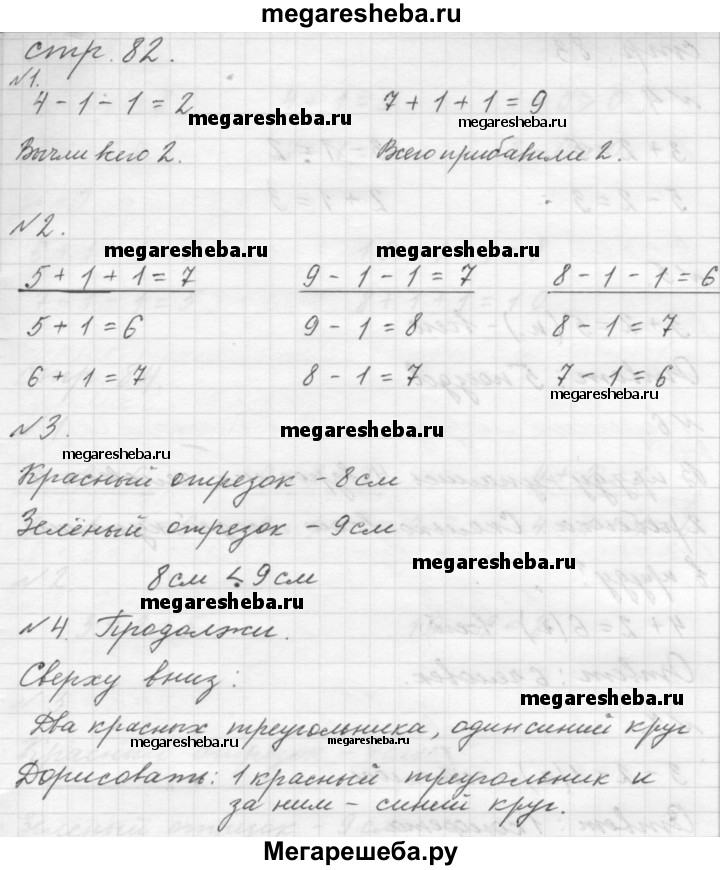 megaresheba.ru
стр. 82.
№1.
4 - 1 - 1 = 2 7 + 1 + 1 = 9
megaresheba.ru megaresheba.ru
Вычли всего 2. Всего прибавили 2.
№2.
megaresheba.ru megaresheba.ru
5 + 1 + 1 = 7 9 - 1 - 1 = 7 8 - 1 - 1 = 6
5 + 1 = 6 9 - 1 = 8 8 - 1 = 7
6 + 1 = 7 8 - 1 = 7 7 - 1 = 6
megaresheba.ru
№3.
megaresheba.ru megaresheba.ru
Красный отрезок - 8 см
Зелёный отрезок - 9 см
megaresheba.ru
8 см < 9 см
megaresheba.ru
№4. Продолжи.
Сверху вниз:
megaresheba.ru
Два красных треугольника, один синий круг
megaresheba.ru megaresheba.ru
Дорисовать: 1 красный треугольник и
за ним - синий круг.
Мегарешеба.ру